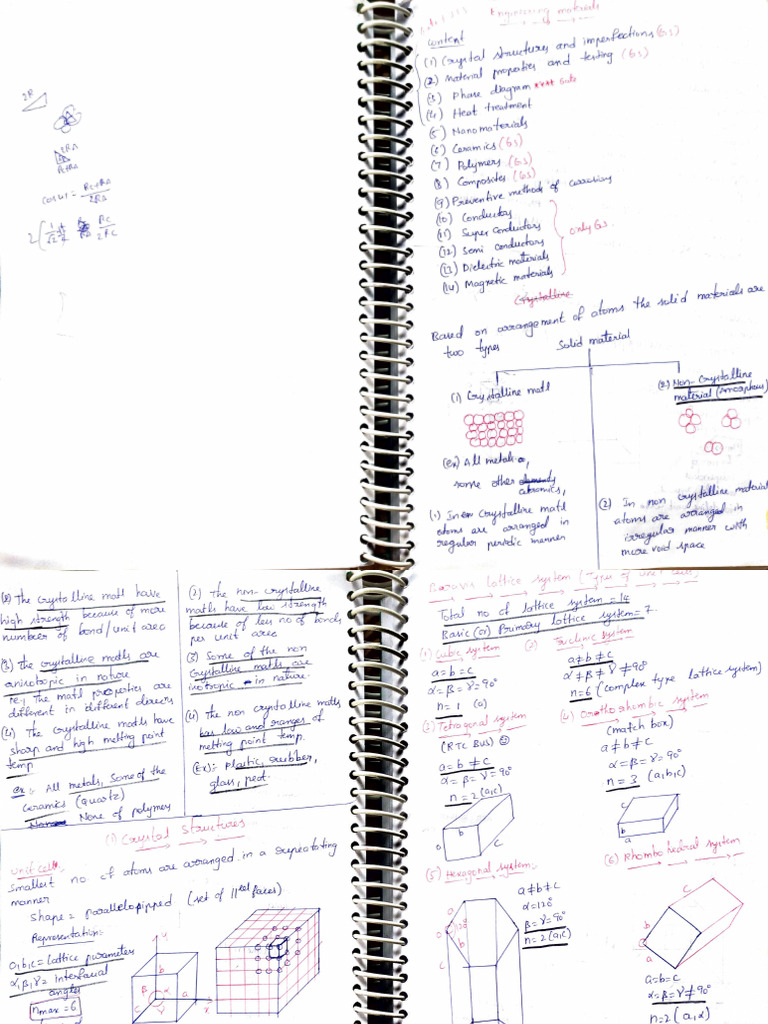 2R
2RA
RC+RA
cos45 = RC+RA / 2RA
Engineering materials
content
(1) Crystal structures and imperfections (GS)
(2) Material properties and testing (GS)
(3) Phase diagram *** Gate
(4) Heat treatment
(5) Nanomaterials
(6) Ceramics (GS)
(7) Polymers (GS)
(8) Composites (GS)
(9) Preventive methods of corrosions
(10) Conductors
(11) Super conductors
(12) Semi conductors
(13) Dielectric materials
(14) Magnetic materials
only GS
Crystalline
Based on arrangement of atoms the solid materials are
two types
Solid material
(1) Crystalline matl
(2) Non-Crystalline
material (Amorphous)
(ex) All metals,
some other
ceramics,
(1) In Crystalline matl
atoms are arranged in
regular periodic manner
(2) In non crystalline material
atoms are arranged in
irregular manner with
more void space
(2) The crystalline matl have
high strength because of more
number of bond/unit area
(3) The crystalline matls are
anisotropic in nature
i.e., the matl properties are
different in different directions
(4) The crystalline matls have
sharp and high melting point
temp
ex:- All metals, Some of the
ceramics (quartz)
None of polymers
(2) The non-crystalline
matls have low strength
because of less no of bonds
per unit area
(3) Some of the non
crystalline matls are
isotropic in nature.
(4) The non crystalline matls
has low and ranges of
melting point temp.
(Ex):- Plastic, rubber,
glass, peat.
(1) Crystal Structures
Unit cell:-
Smallest no of atoms are arranged in a repeatating
manner
Shape = parallelopipped (set of 11lel faces)
Representation:-
a,b,c = lattice parameter
α,β,γ = interfacial
angles
nmax = 6
b
β
α
a
γ
c
x
Bravais lattice system (Types of unit cells)
Total no of lattice system = 14
Basic (or) Primary lattice system = 7.
(1) Cubic system
a=b=c
α=β=γ=90°
n=1 (a)
(2) Triclinic system
a≠b≠c
α≠β≠γ≠90°
n=6 (complex type lattice system)
(2) Tetragonal system
(RTC BUS)
a=b≠c
α=β=γ=90°
n=2(a,c)
(4) Orathorhombic system
(match box)
a≠b≠c
α=β=γ=90°
n=3 (a,b,c)
b
c
b
a
(5) Hexagonal system:-
a≠b≠c
α=120°
β=γ=90°
n=2(a,c)
a
120°
b
c
(6) Rhombohedral system
c
b
a
a=b=c
α=β=γ≠90°
n=2(a,α)